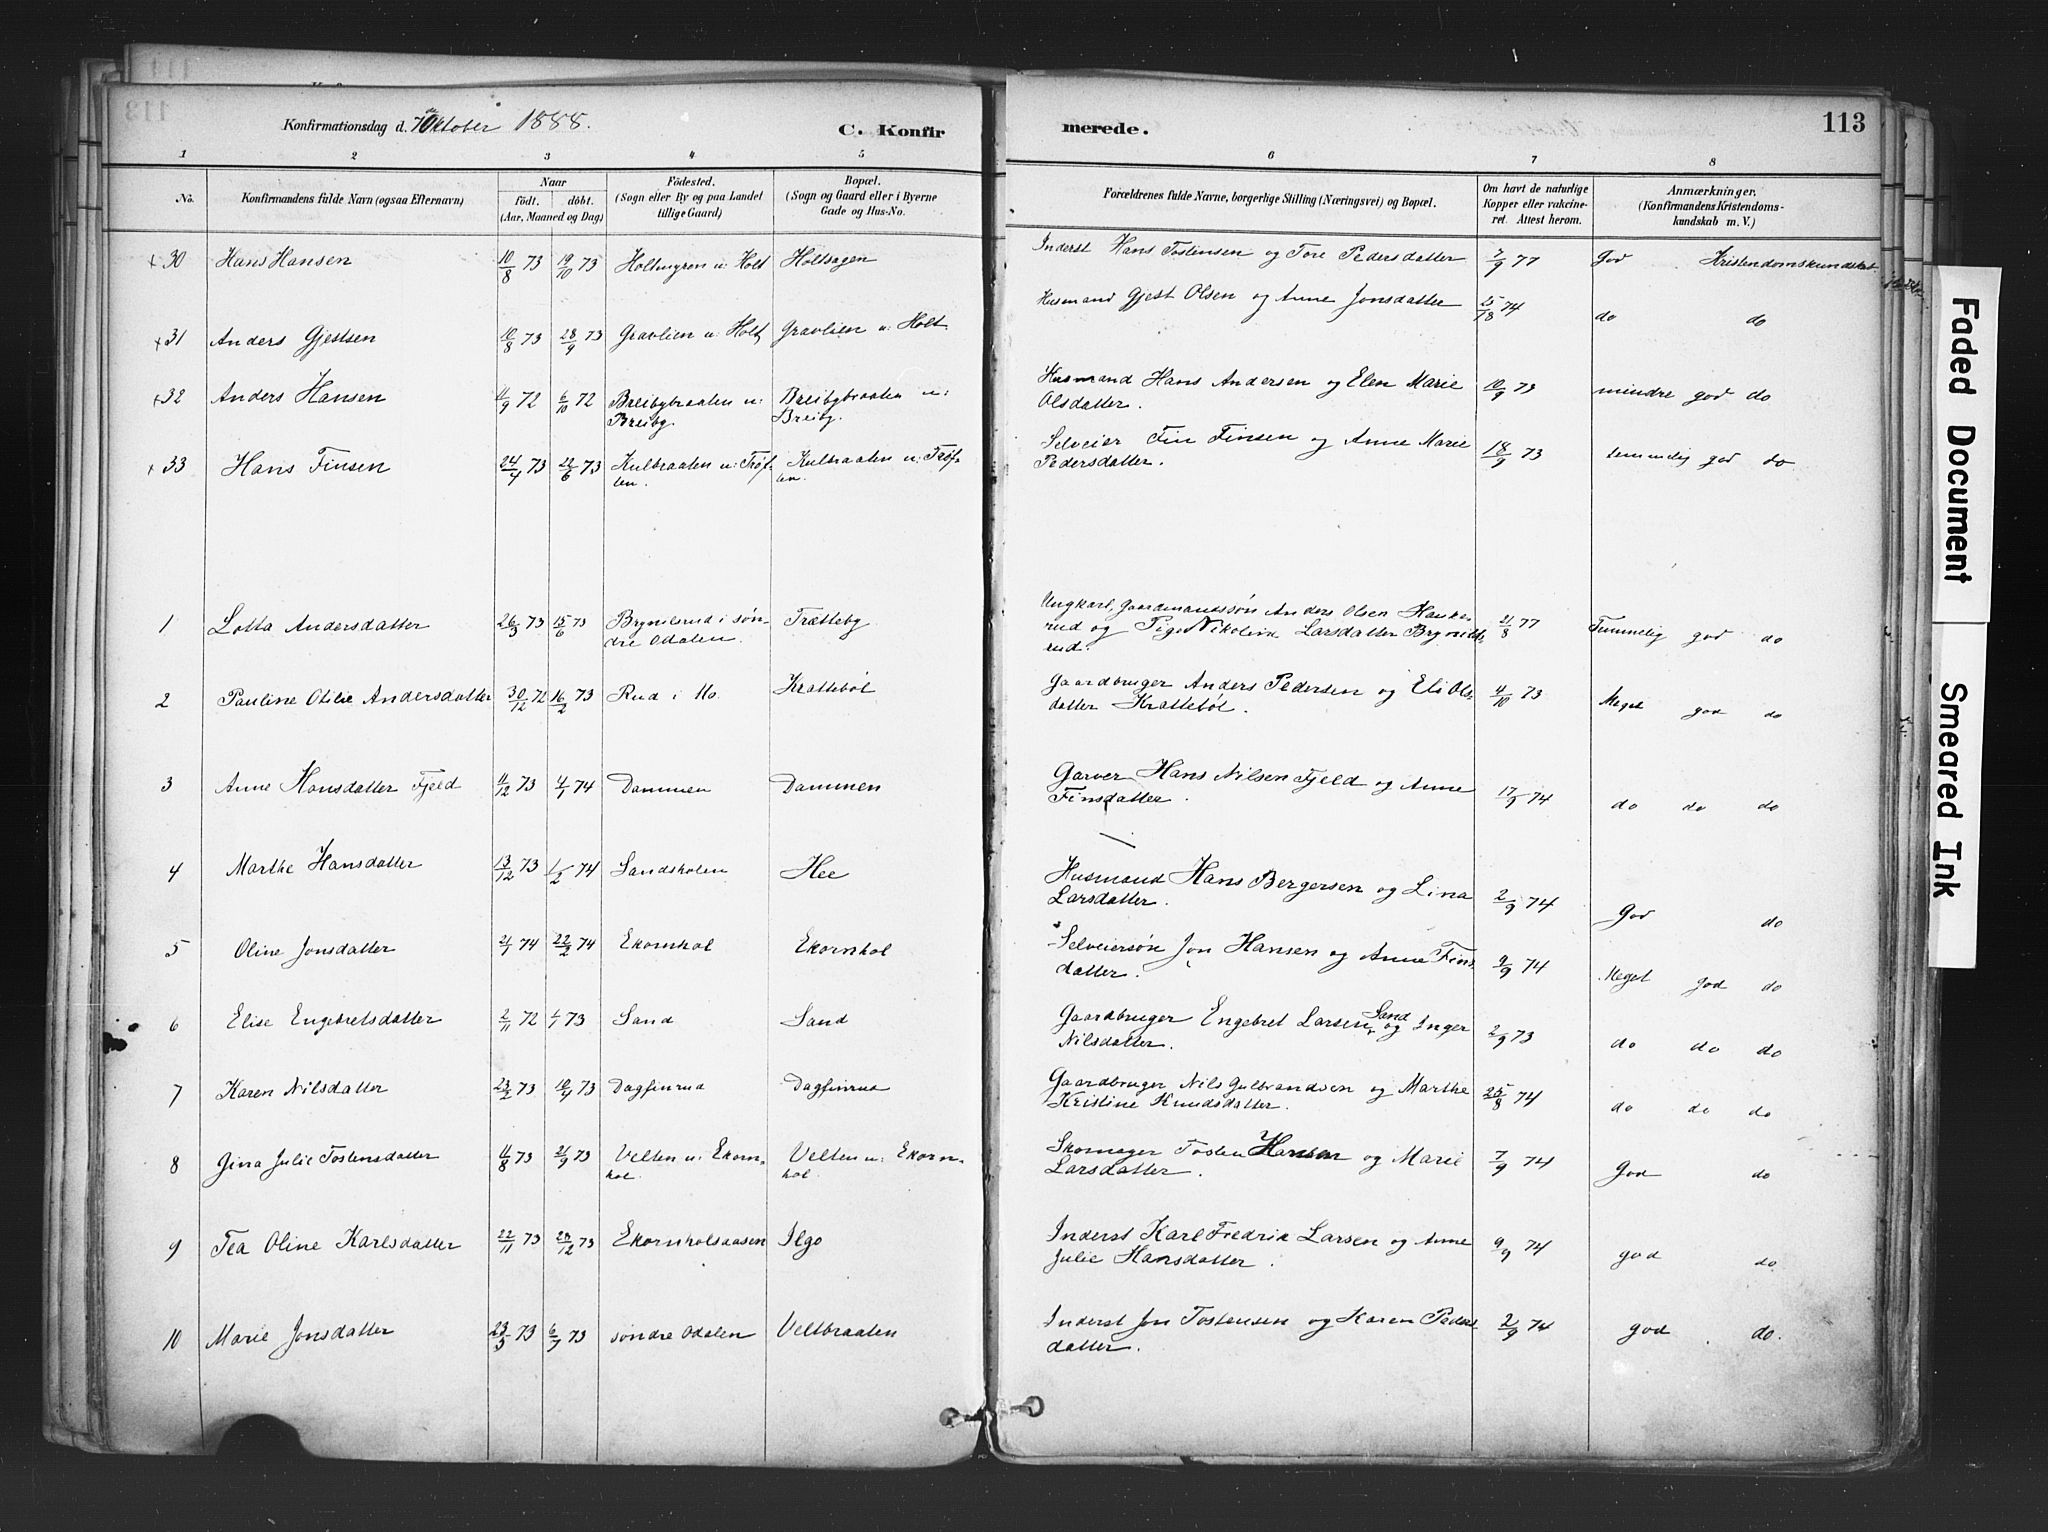 Konfirmationsdag d. 7 Oktober 1888.
C. Konfirmerede.
113
1 2 3 4 5 6 7 8
No.
Konfirmandens fulde Navn (ogsaa Efternavn)
Naar
födt. döbt.
(Aar, Maaned og Dag)
Födested.
(Sogn eller By og paa Landet
tillige Gaard)
Bopæl.
(Sogn og Gaard eller i Byerne
Gade og Hus-No.
Forældrenes fulde Navne, borgerlige Stilling (Næringsvei) og Bopæl.
Om havt de naturlige
Kopper eller vakcine-
ret. Attest herom.
Anmærkninger.
(Konfirmandens Kristendoms-
kundskab m. V.)
+30 Hans Hansen 10/8 73 19/10 73 Holtmyren u: Holt Holtsagen Inderst Hans Tostensen og Tore Pedersdatter 7/9 77 God Kristendomskundskab
+31 Anders Gjestsen 10/8 73 28/9 73 Gravlien u: Holt Gravlien u: Holt. Husmand Gjest Olsen og Anne Jonsdatter 25/8 74 do do
+32 Anders Hansen 11/9 72 6/10 72 Breibybraaten u: Breibybraaten u: Husmand Hans Andersen og Elen Marie 10/9 73 mindre god do
Breiby. Breiby. Olsdatter.
+33 Hans Finsen 24/4 73 22/6 73 Kulbraaten u: Trøf- Kulbraaten u: Trøf- Selveier Fin Finsen og Anne Marie 18/9 73 temmelig god do
ten. ten. Pedersdatter.
1 Lotta Andersdatter 26/3 73 15/6 73 Brynilsrud i søn- Trætteby Ungkarl, Gaardmandssøn Anders Olsen Hauke- 21/8 77 Temmelig god do
dre Odalen. rud og Pige Nikoline Larsdatter Brynilds-
rud.
2 Pauline Otilie Andersdatter 30/12 72 16/2 73 Rud i Mo. Krattebøl Gaardbruger Anders Pedersen og Eli Ols- 4/10 73 Meget god do
datter Krattebøl.
3 Anne Hansdatter Fjeld 11/12 73 4/1 74 Dammen Dammen Garver Hans Nilsen Fjeld og Anne 17/9 74 do do do
Finsdatter.
4 Marthe Hansdatter 13/12 73 1/2 74 Sandsholen Hee Husmand Hans Bergersen og Lina 2/9 74 God do
Larsdatter.
5 Oline Jonsdatter 21/1 74 22/2 74 Ekornhol Ekornhol Selveiersøn Jon Hansen og Anne Fins- 9/9 74 Meget god do
datter.
6 Elise Engebretsdatter 2/11 72 1/1 73 Sand Sand Gaardbruger Engebret Larsen Sand og Inger 2/9 73 do do do
Nilsdatter.
7 Karen Nilsdatter 23/2 73 10/4 73 Dagfinrud Dagfinrud Gaardbruger Nils Gulbrandsen og Marthe 25/8 74 do do do
Kristine Knudsdatter.
8 Gina Julie Tostensdatter 11/8 73 21/9 73 Velten u: Ekorn- Velten u: Ekorn- Skomager Tosten Hansen og Marie 7/9 74 God do
hol. hol. Larsdatter.
9 Tea Oline Karlsdatter 22/11 73 28/12 73 Ekornholsaasen Ilgo Inderst Karl Fredrik Larsen og Anne 9/9 74 god do
Julie Hansdatter.
10 Marie Jonsdatter 23/3 73 6/7 73 søndre Odalen Veltbraaten Inderst Jon Tostensen og Karen Peders- 2/9 74 god do.
datter.
Faded Document
Smeared Ink